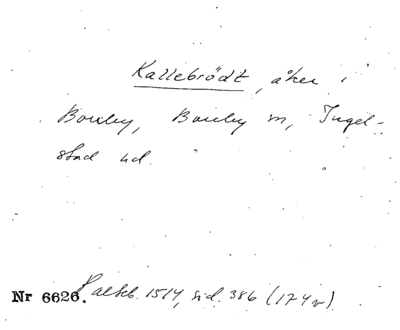 Kallebrödt, åker i
Bouley, Bouley m, Ingel-
stad hd.
Nr 6626. Paltsb. 1514, sid. 386 (174v)